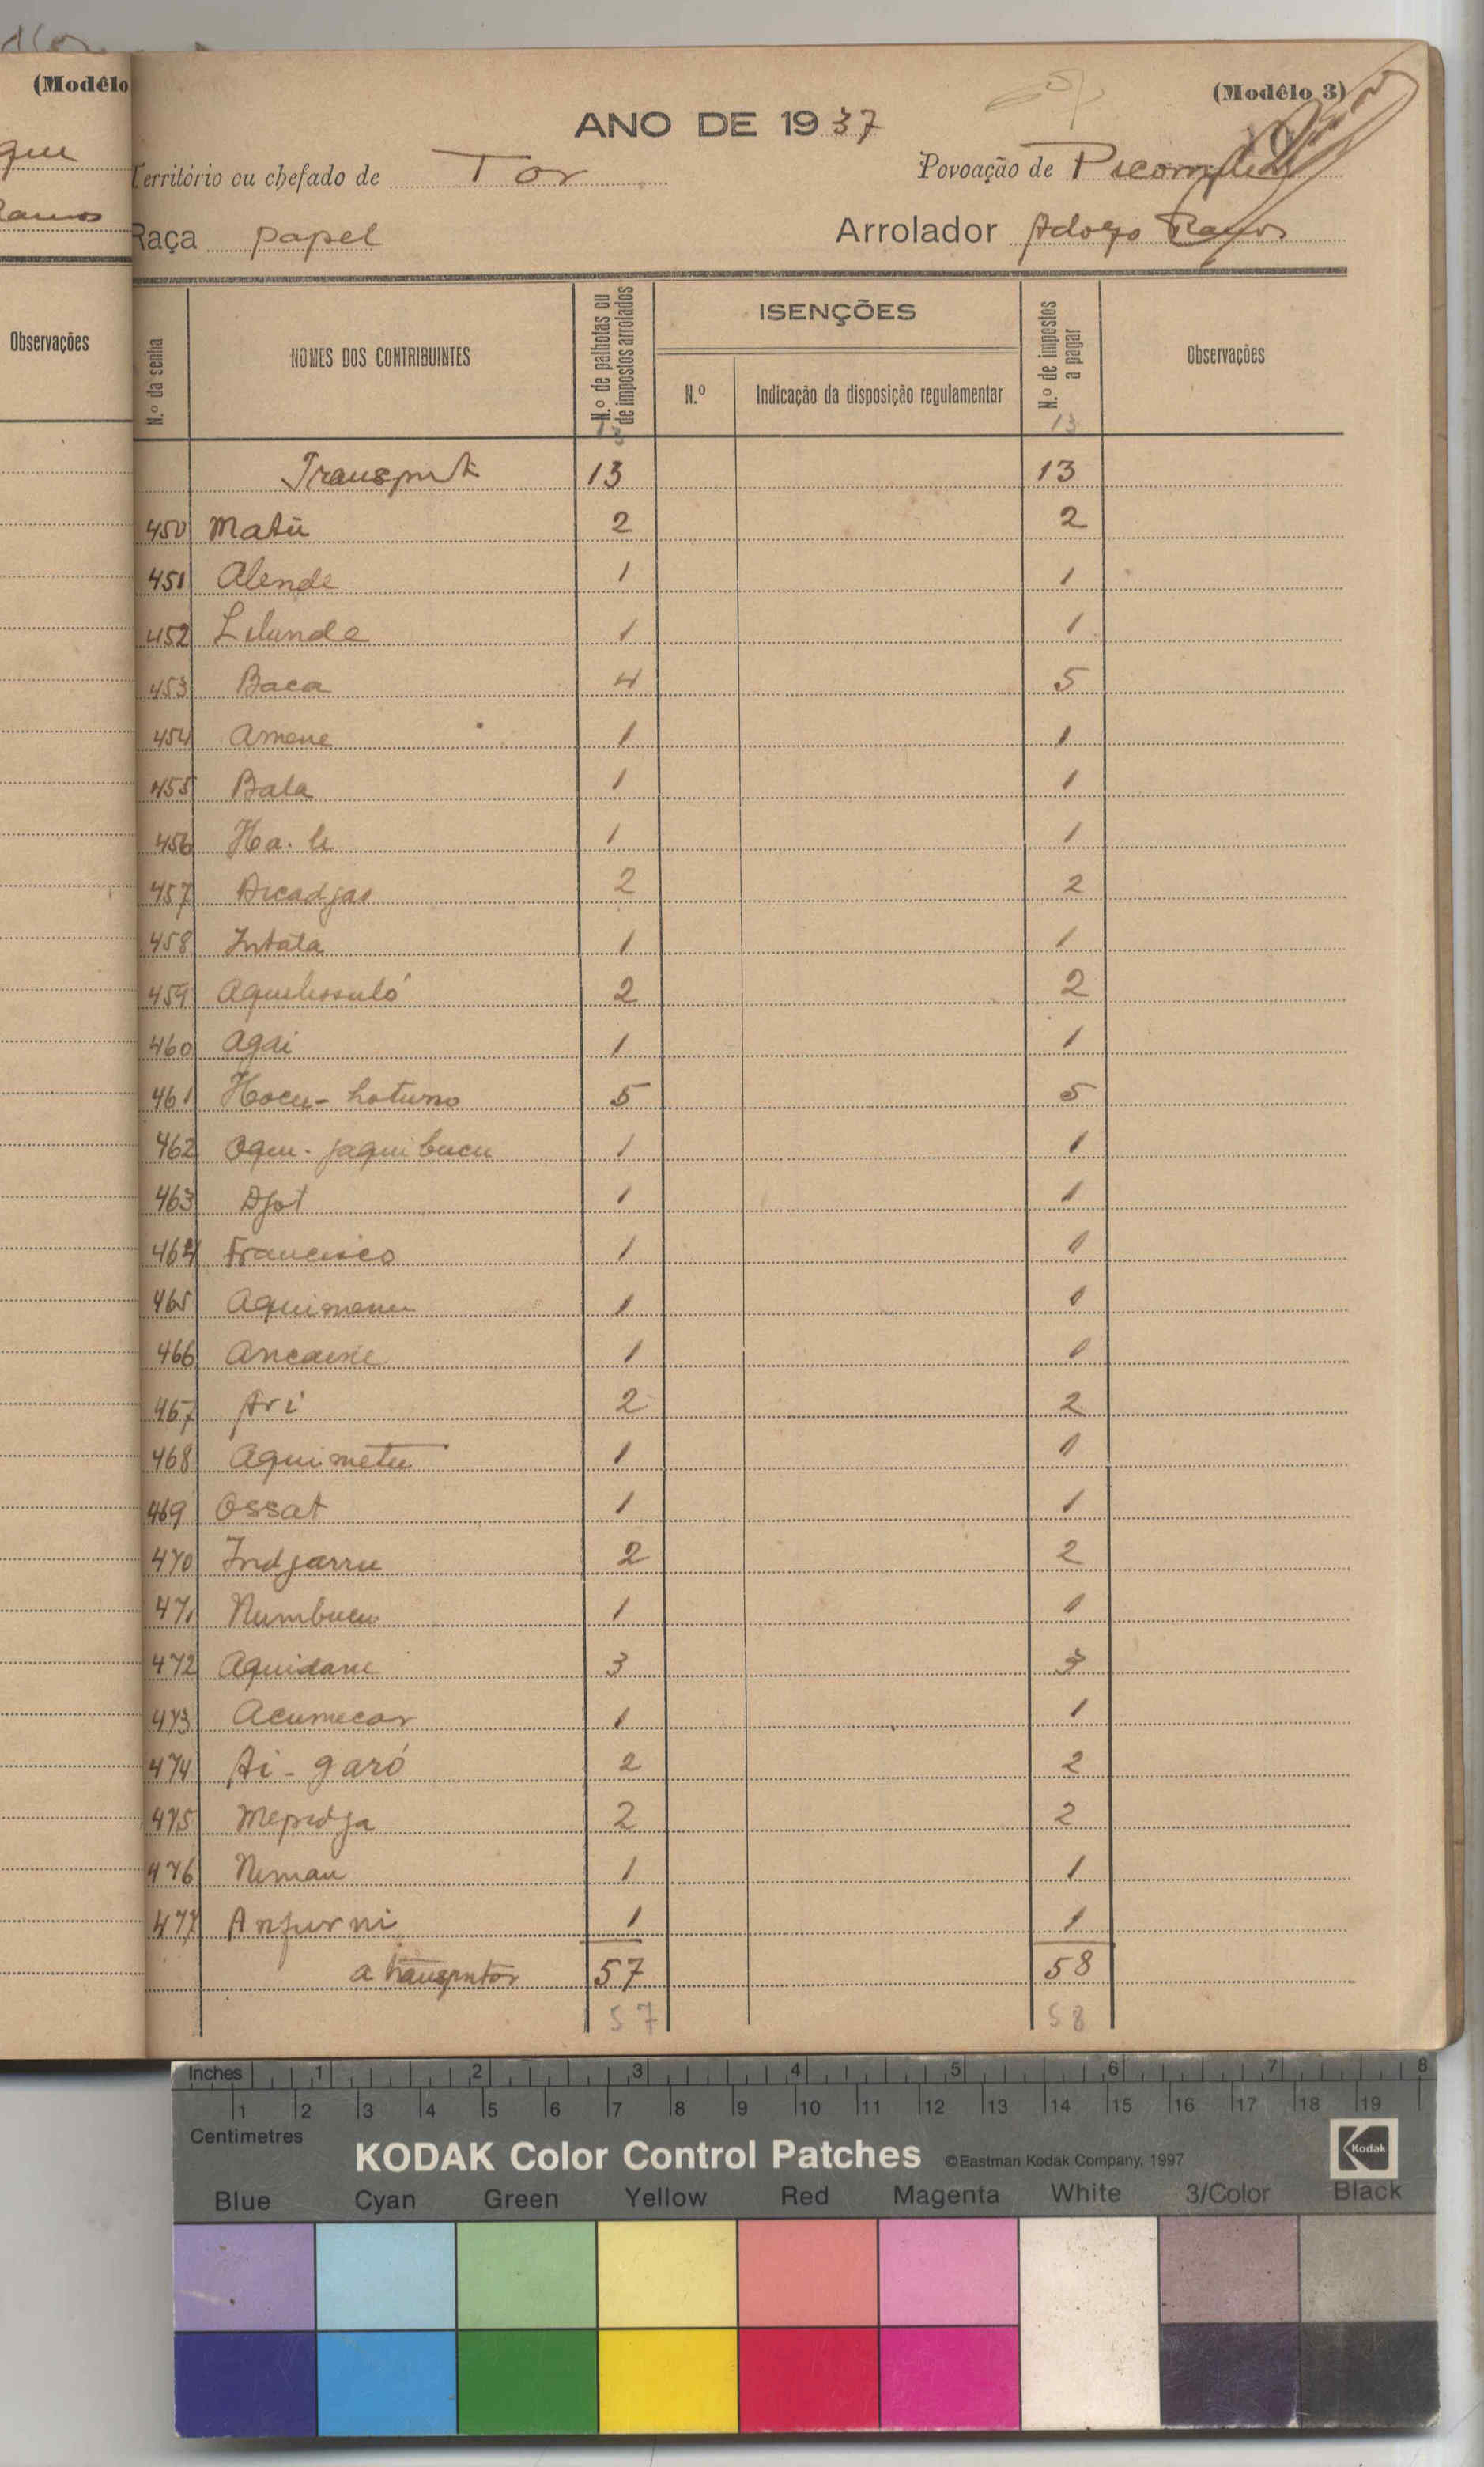 (Modêlo
(Modêlo 3)
ANO DE 1937
Território ou chefado de Tor
Povoação de
Raça papel
Arrolador Ramos
Observações
N.º da senha
NOMES DOS CONTRIBUINTES
N.º de palhotas ou de impostos arrolados
ISENÇÕES
N.º
Indicação da disposição regulamentar
N.º de impostos a pagar
Observações
13
13
Transporte 13 13
450 Matü 2 2
451 Alende 1 1
452 1 1
453 Baca 4 5
454 Amone 1 1
455 Bala 1 1
456 1 1
457 2 2
458 Intata 1 1
459 2 2
460 Agai 1 1
461 5 5
462 1 1
463 Djot 1 1
464 Francisco 1 1
465 1 1
466 1 1
467 Ari 2 2
468 Aquimetu 1 1
469 Ossat 1 1
470 Indjarru 2 2
471 Numbucu 1 1
472 Aquidane 3 3
473 Acumecar 1 1
474 Ai-garó 2 2
475 2 2
476 1 1
477 1 1
a transportar 57 58
57 58
Inches 1 2 3 4 5 6 7 8
1 2 3 4 5 6 7 8 9 10 11 12 13 14 15 16 17 18 19
Centimetres
KODAK Color Control Patches ©Eastman Kodak Company, 1997 Kodak
Blue Cyan Green Yellow Red Magenta White 3/Color Black